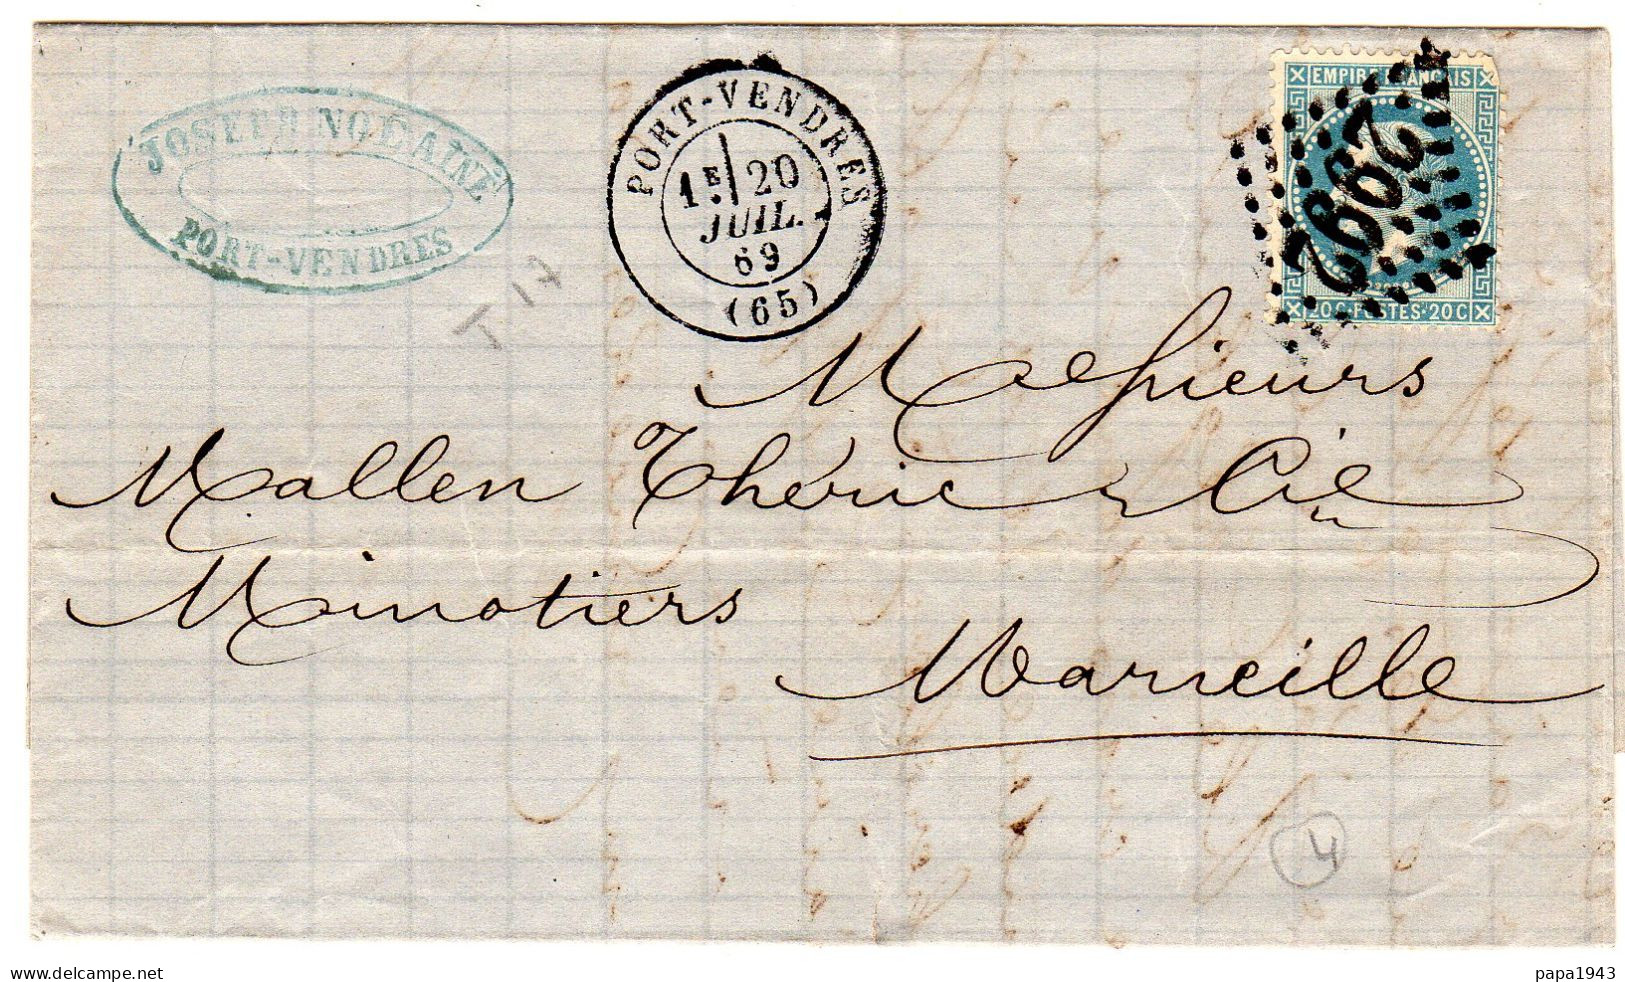 JOSEPH NOË AINÉ
PORT-VENDRES
PORT-VENDRES
1E 20
JUIL.
69
(65)
EMPIRE FRANÇAIS
2992
20 C·POSTES·20 C
T 17
Messieurs
Mallen Théric & Cie
Minotiers
Marseille
4
papa1943